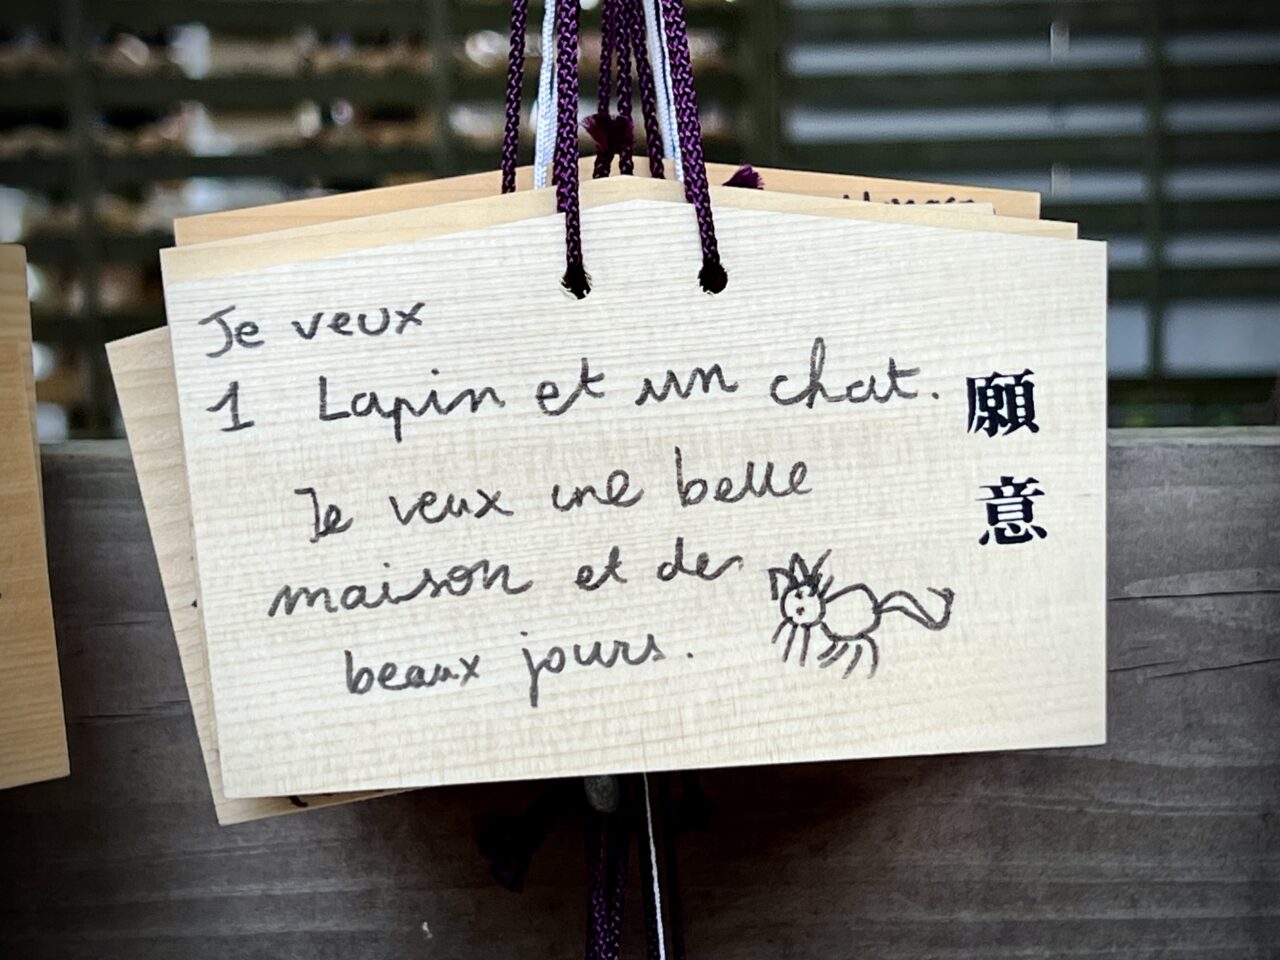 Je veux
1 Lapin et un chat.
Je veux une belle
maison et de
beaux jours.
願意